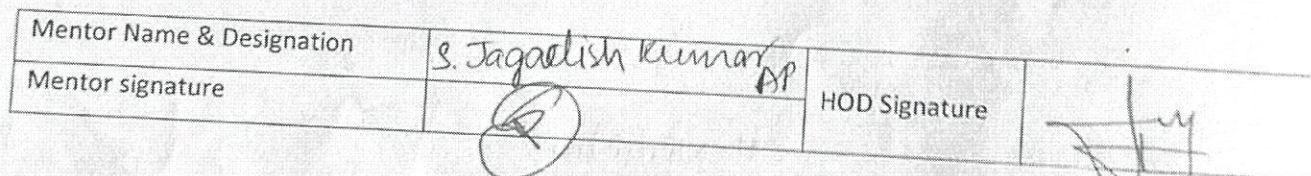 Mentor Name & Designation
S. Jagadish Kumar
AP
Mentor signature
HOD Signature